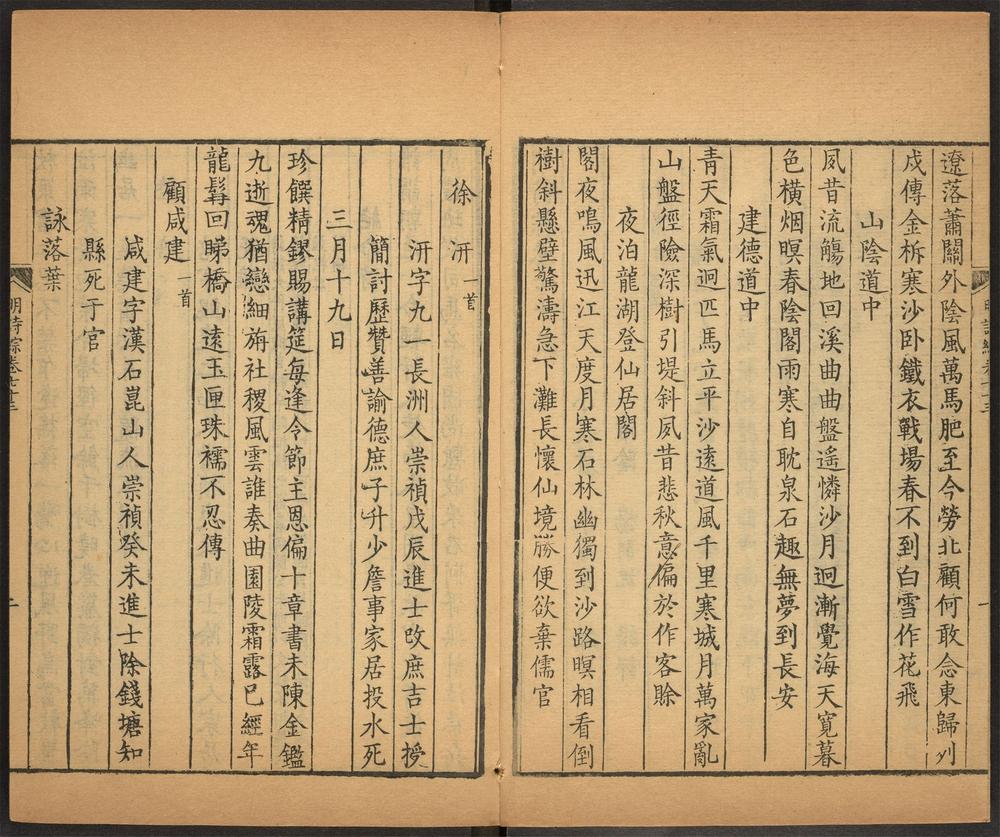 遼落蕭關外陰風萬馬肥至今勞北顧何敢念東歸列
戍傳金柝寒沙臥鐵衣戰場春不到白雪作花飛
山陰道中
夙昔流觴地回溪曲曲盤遙憐沙月迥漸覺海天寬暮
色橫烟暝春陰閣雨寒自耽泉石趣無夢到長安
建德道中
青天霜氣迥匹馬立平沙遠道風千里寒城月萬家亂
山盤徑險深樹引堤斜夙昔悲秋意偏於作客賒
夜泊龍湖登仙居閣
閣夜鳴風迅江天度月寒石林幽獨到沙路暝相看倒
樹斜懸壁驚濤急下灘長懷仙境勝便欲棄儒官
徐汧一首
汧字九一長洲人崇禎戊辰進士改庶吉士授
簡討歷贊善諭德庶子升少詹事家居投水死
三月十九日
珍饌精鏐賜講筵每逢令節主恩偏十章書未陳金鑑
九逝魂猶戀細旃社稷風雲誰奏曲園陵霜露已經年
龍髯回睇橋山遠玉匣珠襦不忍傳
顧咸建一首
咸建字漢石崑山人崇禎癸未進士除錢塘知
縣死于官
詠落葉
明詩綜卷七十三